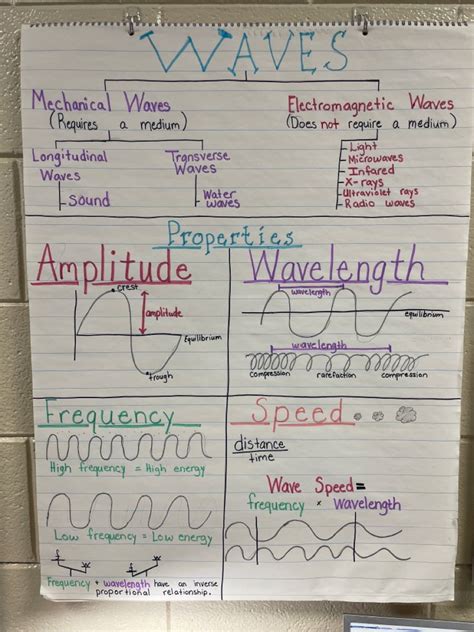 WAVES
Mechanical Waves
(Requires a medium)
Electromagnetic Waves
(Does not require a medium)
Longitudinal
Waves
- Sound
Transverse
Waves
Water
waves
- Light
- Microwaves
- Infared
- X-rays
- Ultraviolet rays
- Radio waves
Properties
Amplitude
crest
amplitude
Equilibrium
trough
Wavelength
wavelength
equilibrium
wavelength
compression rarefaction compression
Frequency
High frequency = High energy
Low frequency = Low energy
Frequency + wavelength have an inverse
proportional relationship.
Speed
distance
time
Wave Speed=
frequency × Wavelength